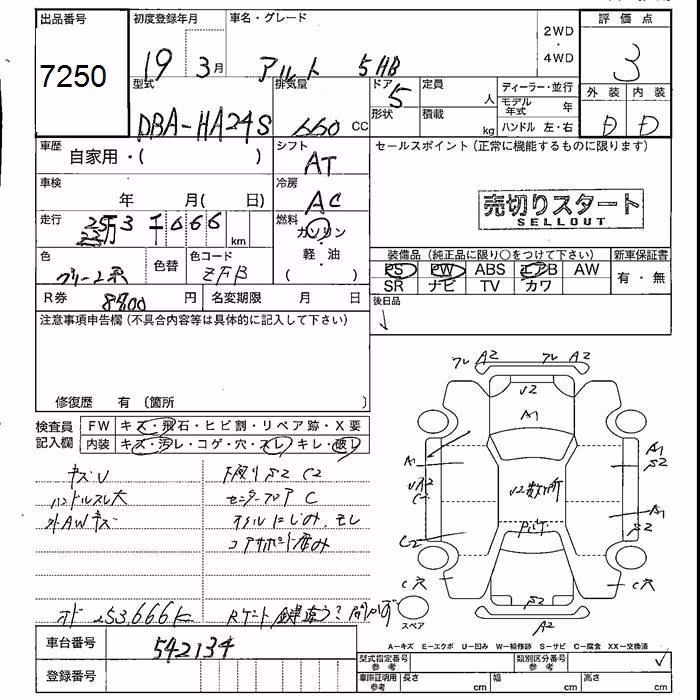 出品番号 初度登録年月 車名・グレード 2WD・4WD 評価点
7250 19年 3月 アルト 5HB 3
型式 排気量 ドア 5 定員 人 ディーラー・並行 外装 内装
DBA-HA24S 660 CC 形状 積載 kg モデル年式 年 D D
ハンドル 左・右
車歴 自家用・( ) シフト AT セールスポイント(正常に機能するものに限ります)
車検 年 月( 日) 冷房 AC
売切りスタート
SELLOUT
走行 25万3千666 km 燃料 ガソリン・軽・油 ( )
装備品(純正品に限り○をつけて下さい) 新車保証書
色 色替 色コード ZFB PS PW ABS エアB AW 有・無
SR ナビ TV カワ
R券 8900 円 名変期限 月 日 後日品
注意事項申告欄(不具合内容等は具体的に記入して下さい)
修復歴 有 〔箇所 〕
検査員記入欄 FW キズ・飛石・ヒビ割・リペア跡・X要
内装 キズ・汚レ・コゲ・穴・スレ・キレ・破レ
キズU
ハンドルスレ大
外AWキズ
下廻りS2 C2
センターフロア C
オイルにじみ、モレ
コアサポート凹み
253,666K
フレ A2 フレ A2
U2
A1
A1
A1
S2
C2
A1
S2
C穴
C穴
S2
A2
スペア
A-キズ E-エクボ U-凹み W-補修跡 S-サビ C-腐食 XX-交換済
車台番号 542134
登録番号
型式指定番号 参考 類別区分番号 参考
車庫証明用 参考 長さ cm 幅 cm 高さ cm